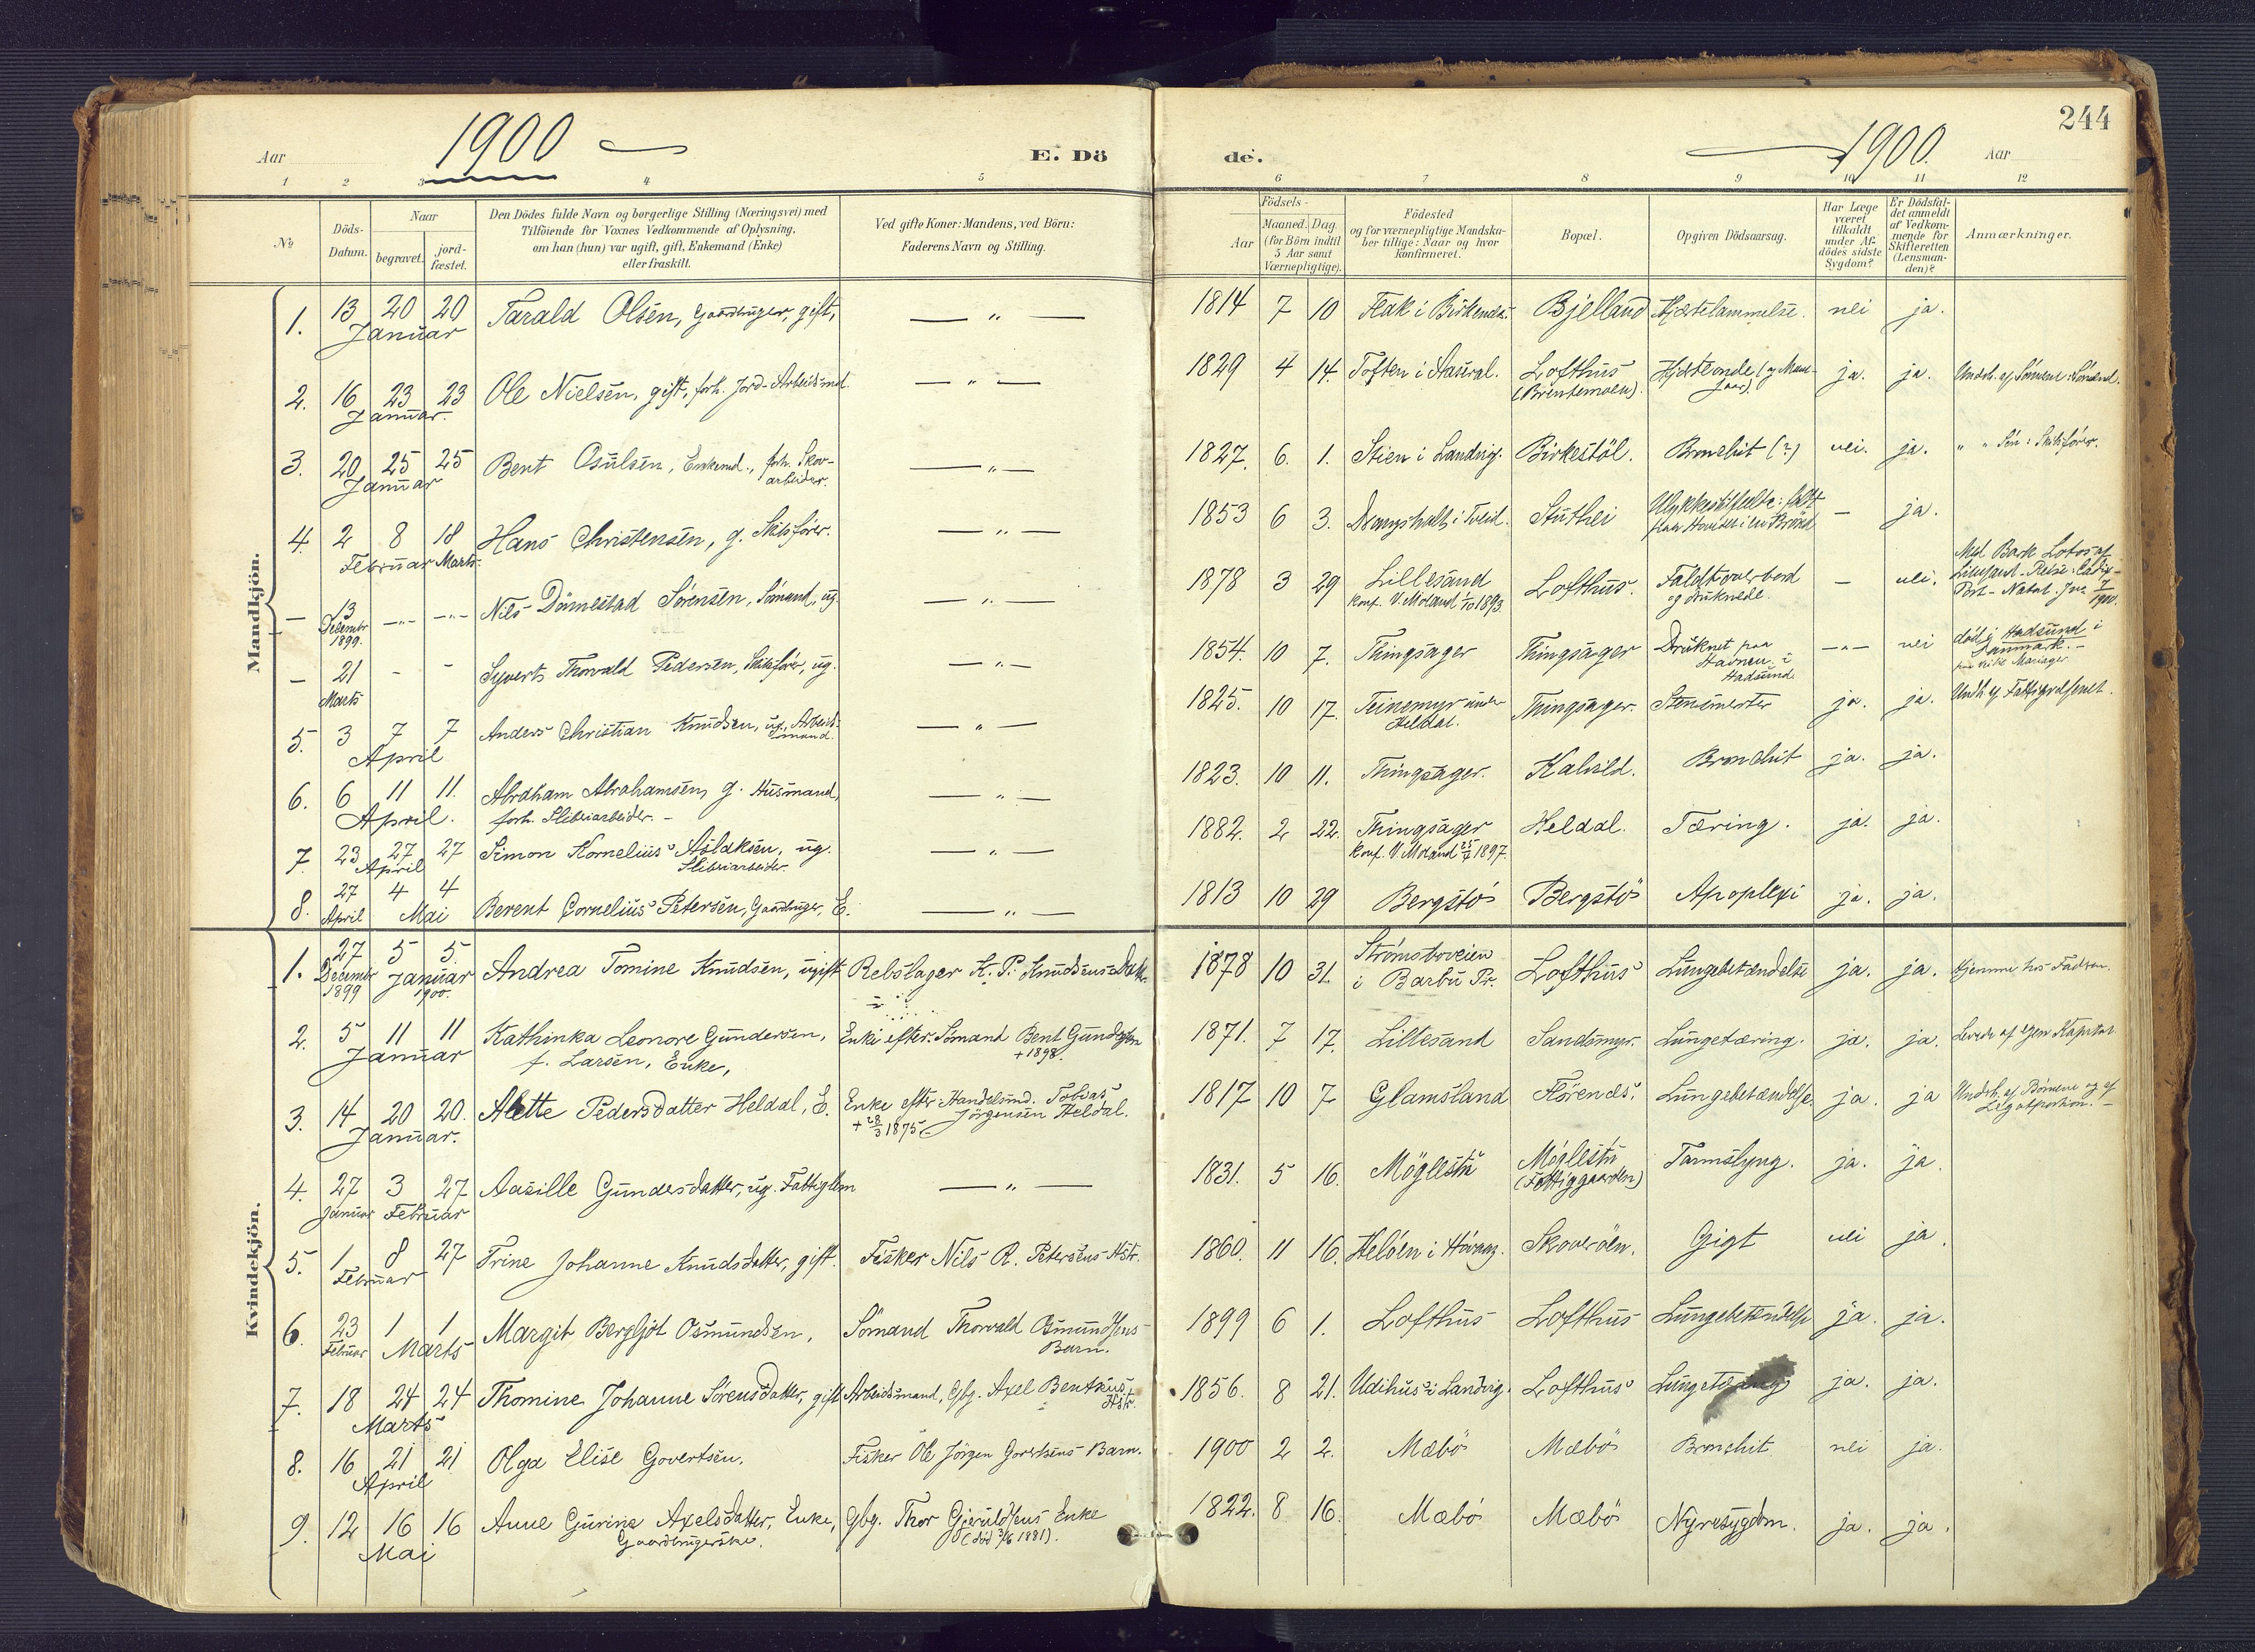 244
Aar 1900 E. Döde. 1900. Aar
1 2 3 4 5 6 7 8 9 10 11 12
№
Döds-Datum.
Naar begravet. jordfæstet.
Den Dödes fulde Navn og borgerlige Stilling (Næringsvei) med
Tilföiende for Voxnes Vedkommende af Oplysning,
om han (hun) var ugift, gift, Enkemand (Enke)
eller fraskilt.
Ved gifte Koner: Mandens, ved Börn:
Faderens Navn og Stilling.
Födsels-
Aar Maaned. Dag
(for Börn indtil
5 Aar samt
Værnepligtige).
Födested
og for værnepligtige Mandskaber tillige: Naar og hvor
konfirmeret.
Bopæl.
Opgiven Dödsaarsag.
Har Læge
været
tilkaldt
under Afdödes sidste
Sygdom?
Er Dödsfaldet anmeldt
af Vedkommende for
Skifteretten
(Lensmanden)?
Anmærkninger.
Mandkjön.
1. 13 20 20 Januar Tarald Olsen, Gaardbruger, gift, — " — 1814 7 10 Flak i Birkenæs. Bjelland Hjertelammelse. nei ja.
2. 16 23 23 Januar. Ole Nielsen, gift, forh. Jord-Arbeidsmd. — " — 1829 4 14. Toften i Lofthus (Brentemoen). ja. ja. Undh. af Sönnen: Sömand.
3. 20 25 25 Januar Bent Osulsen, Enkemd., forh. Skovarbeider. — " — 1827. 6. 1. Stien i Landvig. Birkestöl. Bronchit (?) nei. ja. " " Sön: Skibsförer.
4. 2 8 18 Februar Marts. Hans Christensen, g. Skibsförer. — " — 1853 6 3. i Tveid. Stuthei Ulykkestilfælde: faldt i en Brönd — ja.
— 13 Decembr 1899. —"— —"— Nils Dömestad Sörensen, Sömand, ug. — " — 1878 3 29 Lillesand Konf. V. Moland 1/10 1893. Lofthus. Faldt overbord og druknede. — nei. Med Bark Lotos af Lillesand - Reise: Cadix - Port-Natal. 1900.
— 21 Marts - - Syvert Thorvald Pedersen, Skibsförer, ug. — " — 1854. 10 7. Thingsager Thingsager Druknet paa Havnen i Hadsund. —"— nei död i Hadsund i Danmark. - Mariager
5. 3 7 7 April Anders Christian Knudsen, ug. Arbeidsmand. — " — 1825. 10 17. Teinemyr under Heldal. Thingsager. ja. ja. Undh. af Fattigvæsenet.
6. 6 11 11. April. Abraham Abrahamsen, g. Husmand, forh. Sliberiarbeider. - — " — 1823. 10 11. Thingsager. Kalvild. Bronchit ja. ja.
7. 23 27 27 April Simon Kornelius Aslaksen, ug. Sliberiarbeider. — " — 1882. 2 22. Thingsager Konf. V. Moland 25/4 1897. Heldal. Tæring. ja. ja.
8. 27 April 4 4 Mai Berent Cornelius Petersen, Gaardbruger, E. — " — 1813 10 29 Bergstö Bergstö Apoplexi ja. ja.
Kvindekjön.
1. 27 Decembr 1899 5 5. Januar 1900. Andrea Tomine Knudsen, ugift Rebslager K. P. Knudsens Datt. 1878 10 31. Strömsboveien i Barbu Pr. Lofthus Lungebetændelse ja. ja. Hjemme hos Fadren.
2. 5 11 11 Januar Kathinka Leonore Gundersen, f. Larsen, Enke, Enke efter Sömand Bent Gundersen + 1898. 1871. 7 17. Lillesand Sandsmyr. Lungetæring. ja. ja. Levede af egen Kapital
3. 14 20 20. Januar. Alette Pedersdatter Heldal, E. Enke efter Handelsmd. Tobias Jörgensen Heldal. + 28/3 1875 1817 10 7 Glamsland Flörenæs. Lungebetændelse. ja. ja Undh. af Börnene og af Legatportion. -
4. 27 Januar 3 27 Februar Aasille Gundersdatter, ug. Fattiglem — " — 1831. 5 16. Möglestu Möglestu (Fattiggaarden) Tarmslyng. ja. ja.
5. 1 8 27 Februar Trine Johanne Knudsdatter, gift. Fisker Nils R. Petersens Hstr. 1860. 11 16. Helöen i Skoveröen. Gigt nei ja.
6. 23 Februar 1 1 Marts Margit Bergljot Osmundsen, Sömand Thorvald Osmundsens Barn. 1899 6 1. Lofthus Lofthus Lungebetændelse ja. ja.
7. 18 24 24 Marts Thomine Johanne Sörensdatter, gift Arbeidsmand, Gbg. Axel Hstr. 1856. 8 21. Udihus i Landvig. Lofthus Lungetæring ja. ja.
8. 16 21 21 April Olga Elise Govertsen. Fisker Ole Jörgen Govertsens Barn. 1900 2 2. Mæbö Mæbö Bronchit nei ja.
9. 12 16 16 Mai Anne Gurine Axelsdatter, Enke, Gaardbrugerske. Gbg. Thor Gjeruldsens Enke (död 3/6 1881). 1822. 8 16. Mæbö Mæbö Nyresygdom. ja. ja.